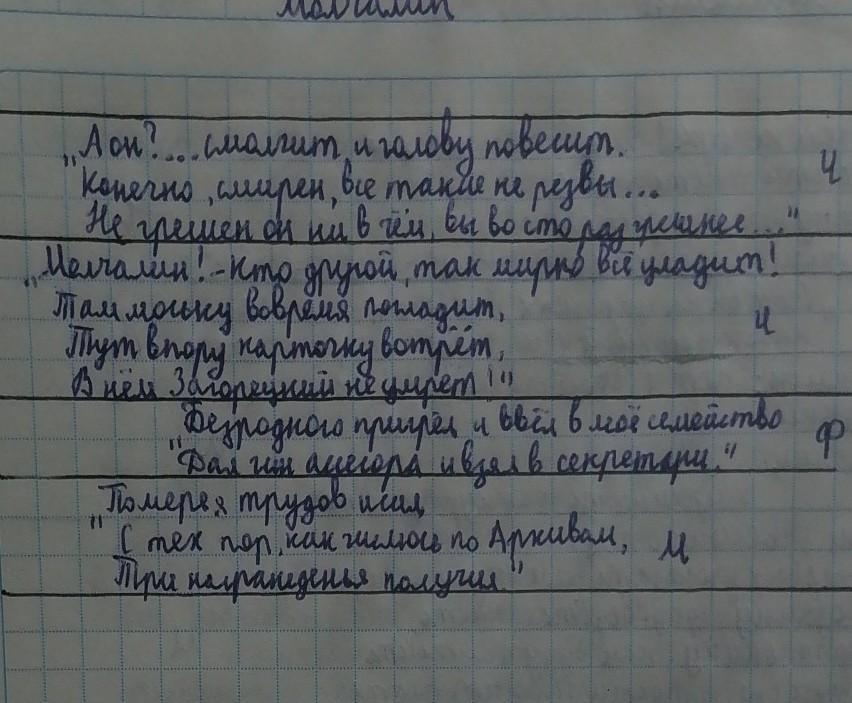 Молчалин
„А он?... смолчит и голову повесит. Ч
Конечно, смирен, все такие не резвы...
Не грешен он ни в чём, вы во сто раз грешнее..."
„Молчалин! - Кто другой, так мирно всё уладит!
Там моську вовремя погладит, Ч
Тут впору карточку вотрёт,
В нём Загорецкий не умрет!"
„Безродного пригрел и ввёл в моё семейство Ф
Дал чин асесора и взял в секретари."
„По мере я трудов и сил,
С тех пор, как числюсь по Архивам, М
Три награжденья получил"